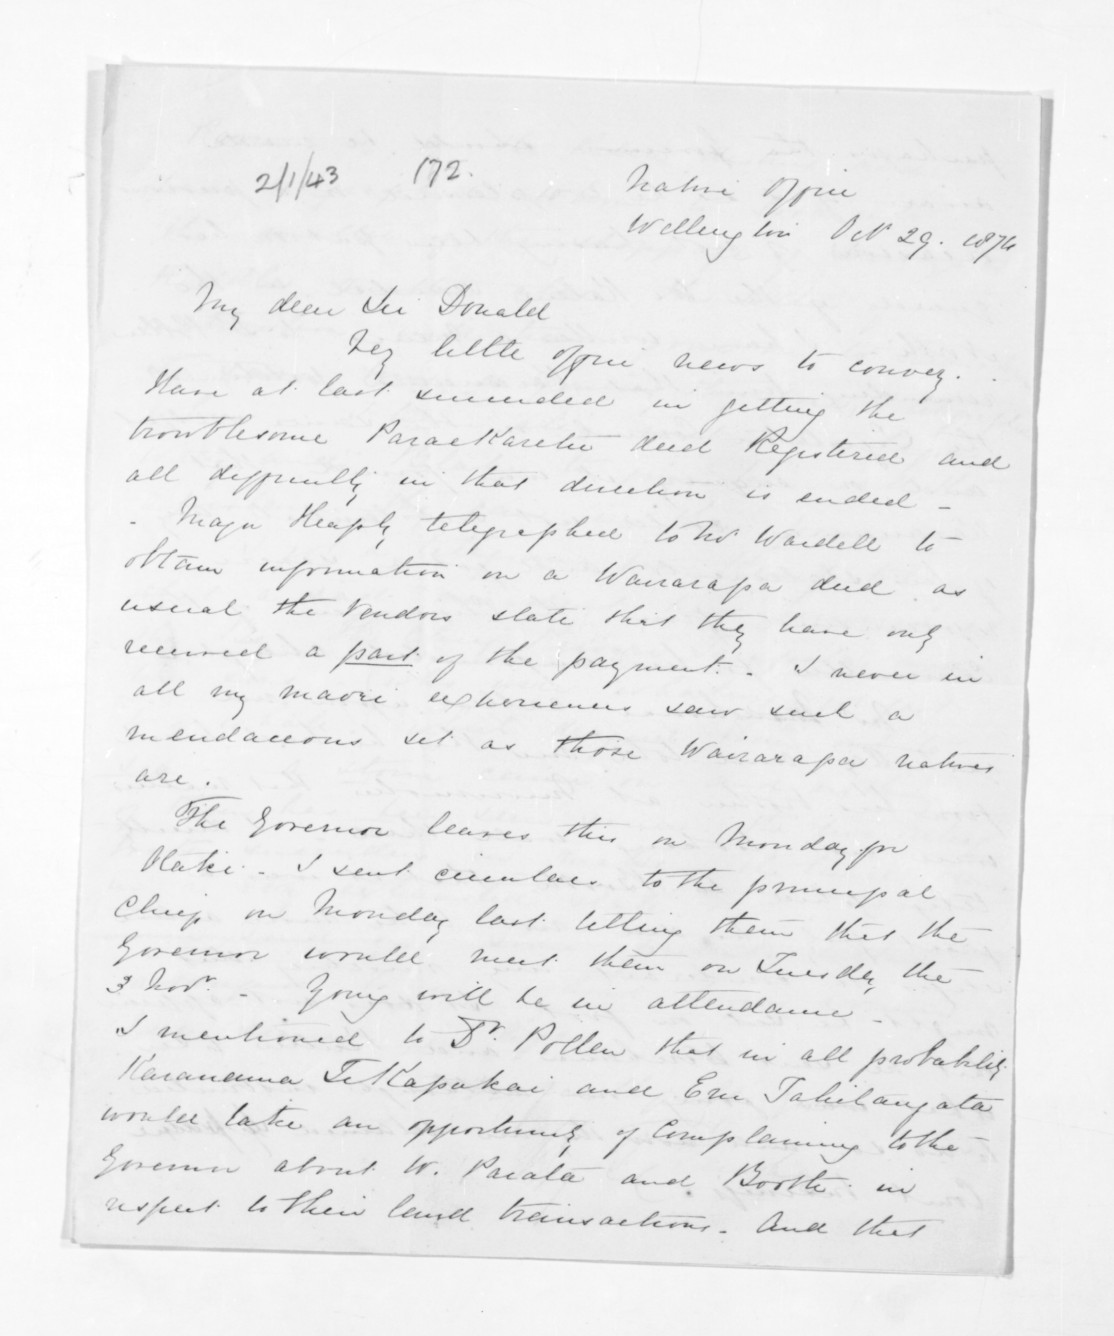 2/1/43 172.
Native Office
Wellington Oct 29. 1874
My dear Sir Donald
Very little office news to convey.
Have at last succeeded in getting the
troublesome ParaeKaretu deed Registered and
all difficulty in that direction is ended -
- Major Heaphy telegraphed to Mr Wardell to
obtain information on a Wairarapa deed as
usual the vendors state that they have only
received a part of the payment. - I never in
all my maori experiences saw such a
mendaceous set as those Wairarapa natives
are.
The Governor leaves this on Monday for
Otaki - I sent circulars to the principal
Chiefs on Monday last telling them that the
Governor would meet them on Tuesday the
3 Novr. - Young will be in attendance -
I mentioned to Dr. Pollen that in all probability
Karanama Te Kapukai and Eru Tahitangata
would take an opportunity of Complaining to the
Governor about W. Parata and Booth in
respect to their land transactions - And that